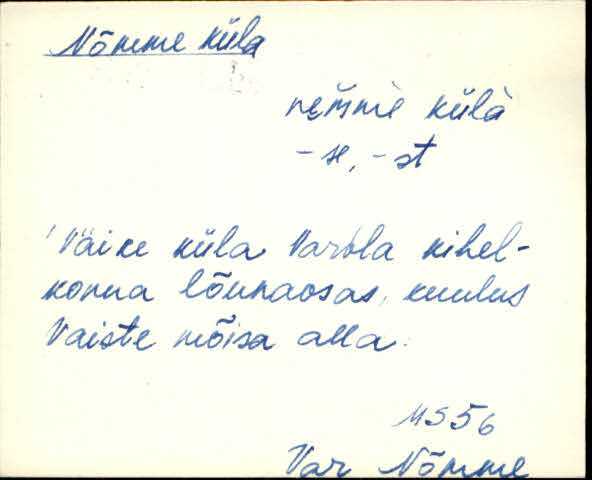 Nõmme küla
nemme külä
-se, -st
Väike küla Varbla kihel-
konna lõunaosas, kuulus
Vaiste mõisa alla.
MS56
Var Nõmme